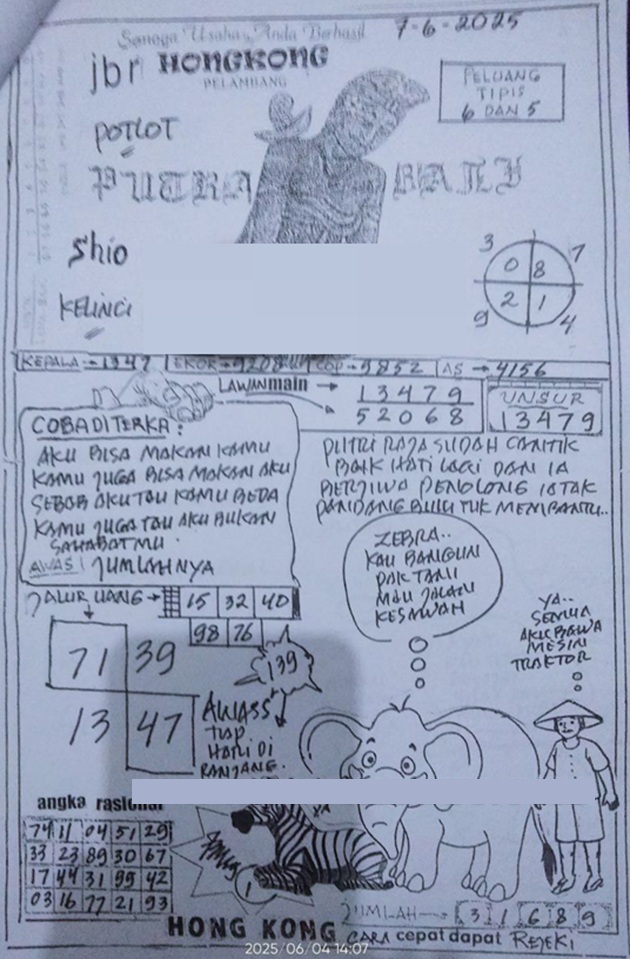 Semoga Usaha Anda Berhasil
7-6-2025
jbr HONGKONG
PELAMBANG
PELUANG
TIPIS
6 DAN 5
POTLOT
PUTRA BALI
Shio
KELINCI
3 7
0 8
2 1
9 4
KEPALA → 1347 EKOR → 9208 COP → 9852 AS → 4156
LAWAN main → 13479
52068
UNSUR
13479
COBA DITERKA:
AKU BISA MAKAN KAMU
KAMU JUGA BISA MAKAN AKU
SEBAB AKU TAU KAMU BEDA
KAMU JUGA TAU AKU BUKAN
SAHABATMU.
AWAS! JUMLAHNYA
PUTRI RAJA SUDAH CANTIK
BAIK HATI LAGI DAN IA
BERJIWA PENOLONG IA TAK
PANDANG BULU TUK MEMBANTU..
ZEBRA..
KAU BANGUN
PAK TANI
MAU JALAN
KESAWAH
YA..
SEMUA
AKU BAWA
MESIN
TRAKTOR
JALUR UANG → 15 32 40
98 76
139
71 39
13 47
AWASS
TIAP
HARI DI
RANJANG.
angka rasional
74 11 04 51 29
33 23 89 30 67
17 44 31 99 42
03 16 77 21 93
YA
JUMLAH → 3 1 6 8 9
HONG KONG CARA cepat dapat REJEKI
2025/06/04 14:07